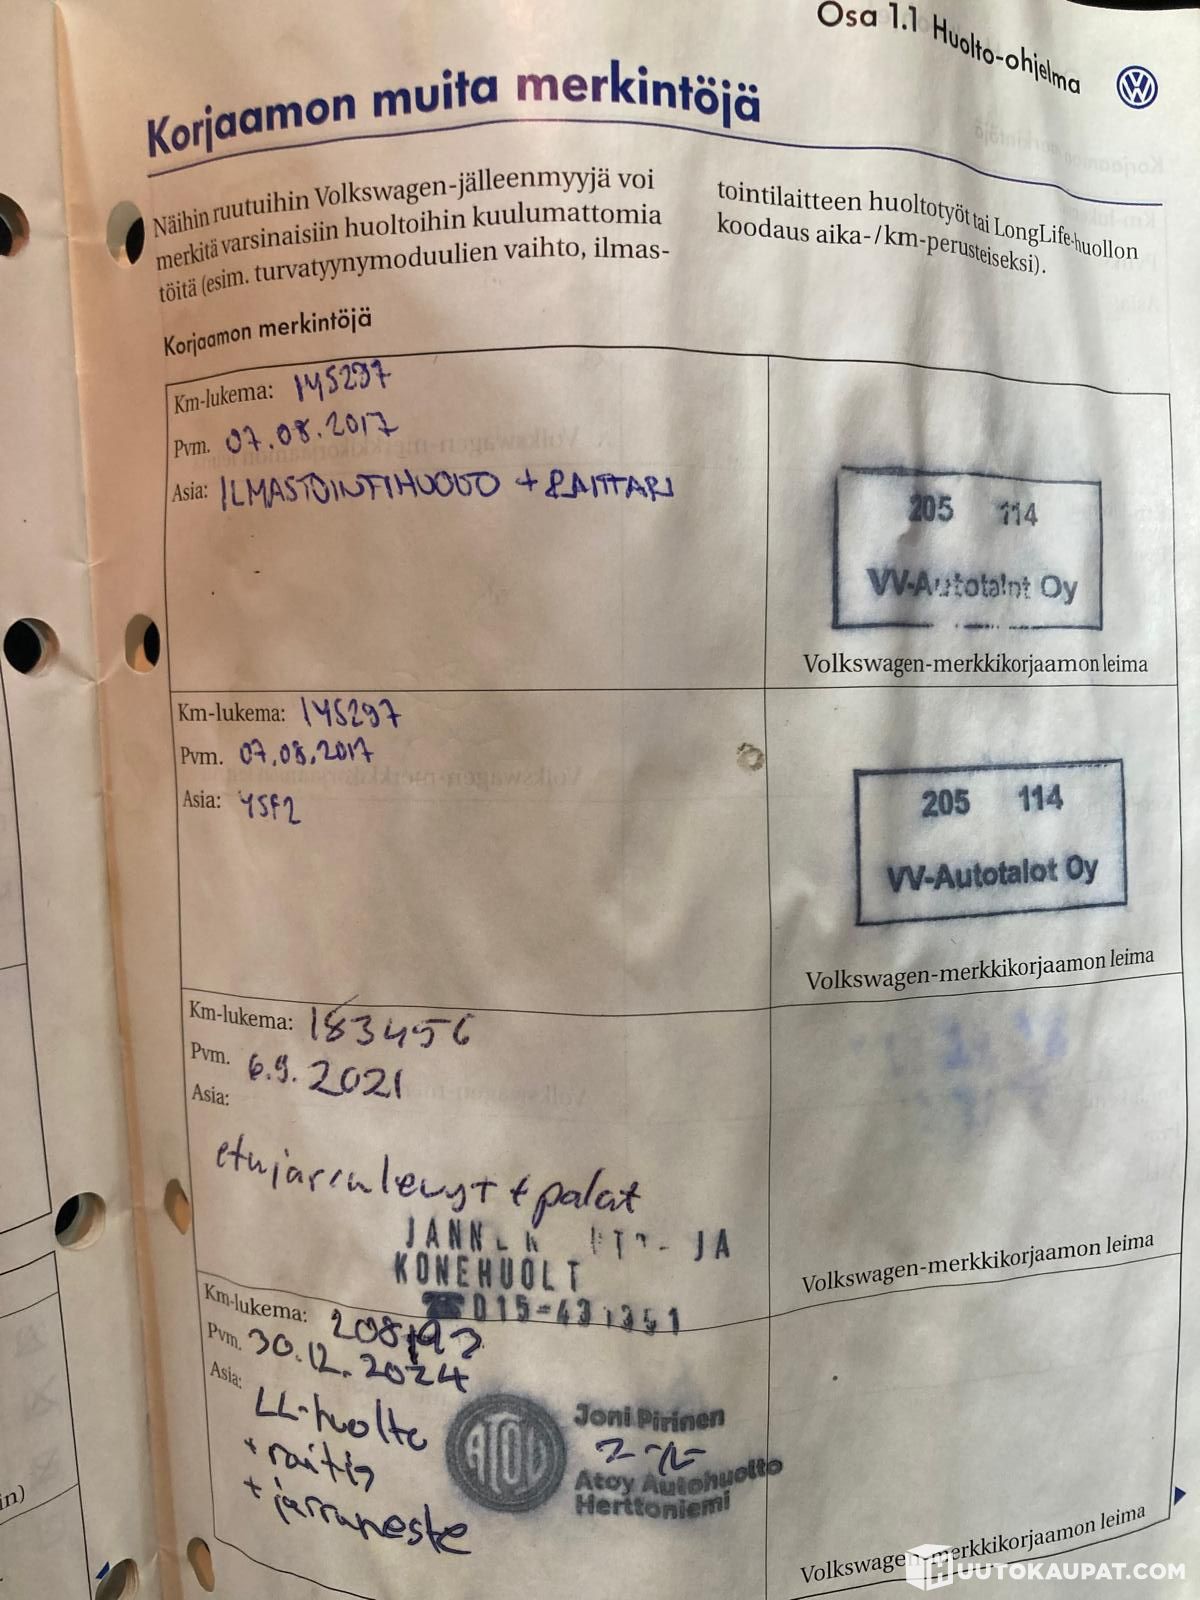 Osa 1.1 Huolto-ohjelma
Korjaamon muita merkintöjä
Näihin ruutuihin Volkswagen-jälleenmyyjä voi
merkitä varsinaisiin huoltoihin kuulumattomia
töitä (esim. turvatyynymoduulien vaihto, ilmas-
tointilaitteen huoltotyöt tai LongLife-huollon
koodaus aika-/km-perusteiseksi).
Korjaamon merkintöjä
Km-lukema: 145297
Pvm. 07.08.2017
Asia: ILMASTOINTIHUOLTO + RAITTARI
205 114
VV-Autotalot Oy
Volkswagen-merkkikorjaamon leima
Km-lukema: 145297
Pvm. 07.08.2017
Asia: 45F2
205 114
VV-Autotalot Oy
Volkswagen-merkkikorjaamon leima
Km-lukema: 183456
Pvm. 6.9.2021
Asia:
etujarrulevyt + palat
JA
KONEHUOLT
Volkswagen-merkkikorjaamon leima
Km-lukema:
Pvm. 30.12.2024
Asia: LL-huolto
+ raitis
+ jarruneste
ATOY
Joni Pirinen
Atoy Autohuolto
Herttoniemi
Volkswagen-merkkikorjaamon leima
in)
HUUTOKAUPAT.COM